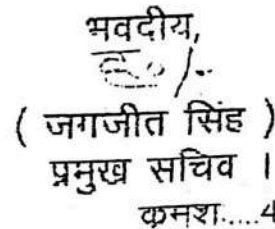 भवदीय,
ह० /-
( जगजीत सिंह )
प्रमुख सचिव ।
कमश.....4